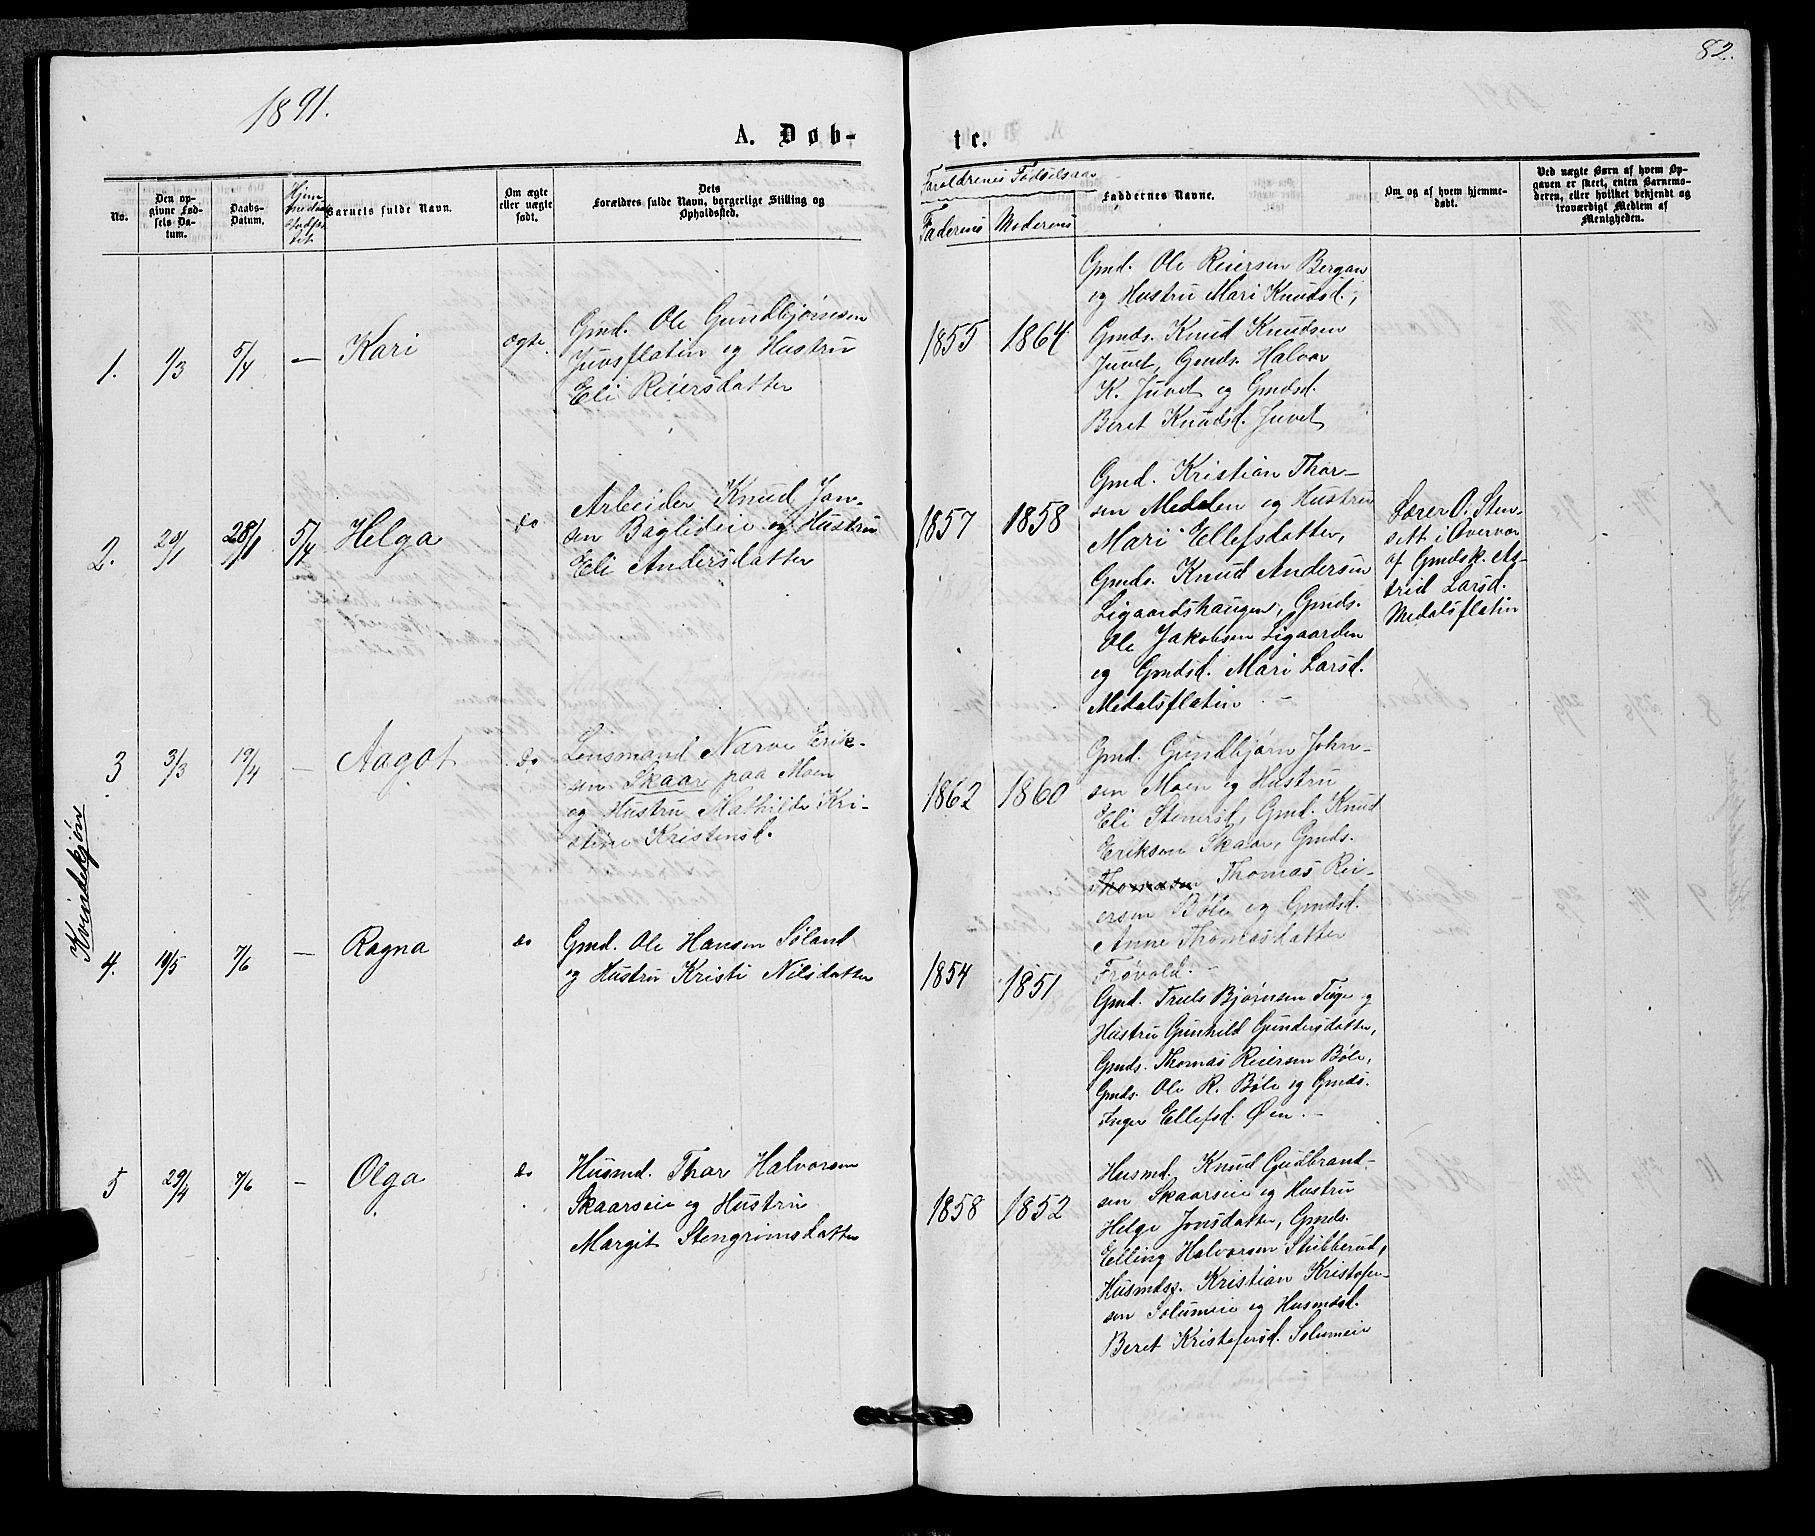 82.
1891.
A. Døb-
te.
No.
Den op-
givne Fød-
sels Da-
tum.
Daabs-
Datum.
Hjem-
Barnets fulde Navn.
Om ægte
eller uægte
født.
Dets
Forældres fulde Navn, borgerlige Stilling og
Opholdssted.
Forældrenes Fødselsaar
Faderens
Moderens
Faddernes Navne.
Om og af hvem hjemme-
døbt.
Ved uægte Børn af hvem Op-
gaven er skeet, enten Barnemo-
deren, eller hvilket bekjendt og
troværdigt Medlem af
Menigheden.
Kvindekjøn
1.
1/3
5/4
—
Kari
ægte
Gmd. Ole Gundbjørnsen
Juvsflatin og Hustru
Eli Reiersdatter
1855
1864
Gmd. Ole Reiersen Bergan
og Hustru Mari Knudsd.,
Gmds. Knud Knudsen
Juvet, Gmds. Halvor
K. Juvet og Gmdsd.
Beret Knudsd. Juvet
2.
20/1
28/1
5/4
Helga
do
Arbeider Knud Jon-
sen Baglideie og Hustru
Eli Andersdatter
1857
1858
Gmd. Kristian Thor-
sen Medalen og Hustru
Mari Ellefsdatter,
Gmds. Knud Andersen
Ligaardshaugen, Gmds.
Ole Jakobsen Ligaarden
og Gmdsd. Mari Larsd.
Medalsflatin. —
Lærer O. Sten-
sett i Overvær
af Gmdsk. As-
trid Larsd.
Medalsflatin
3
3/3
19/4
—
Aagot
do
Lensmand Narve Erik-
sen Skaar paa Moen
og Hustru Mathilde Kri-
stine Kristensd.
1862
1860
Gmd. Gundbjørn John-
sen Moen og Hustru
Eli Stenersd., Gmd. Knud
Eriksen Skaar, Gmds.
Thomasen Thomas Rei-
ersen Bøle og Gmdsd.
Anne Thomasdatter
Frøvold. —
4.
19/5
7/6
—
Ragna
do
Gmd. Ole Hansen Søland
og Hustru Kristi Nilsdatter
1854
1851
Gmd. Truls Bjørnsen Tuge og
Hustru Gunhild Gundersdatter,
Gmds. Thomas Reiersen Bøle,
Gmds. Ole R. Bøle og Gmds.
Inger Ellefsd. Øen. —
5
29/4
7/6
—
Olga
do
Husmd. Thor Halvorsen
Skaarseie og Hustru
Margit Stengrimsdatter
1858
1852
Husmd. Knud Gudbrand-
sen Skaarseie og Hustru
Helge Jonsdatter, Gmds.
Elling Halvorsen Stubberud,
Husmds. Kristian Kristofer-
sen Solumeie og Husmdsd.
Beret Kristofersd. Solumeie